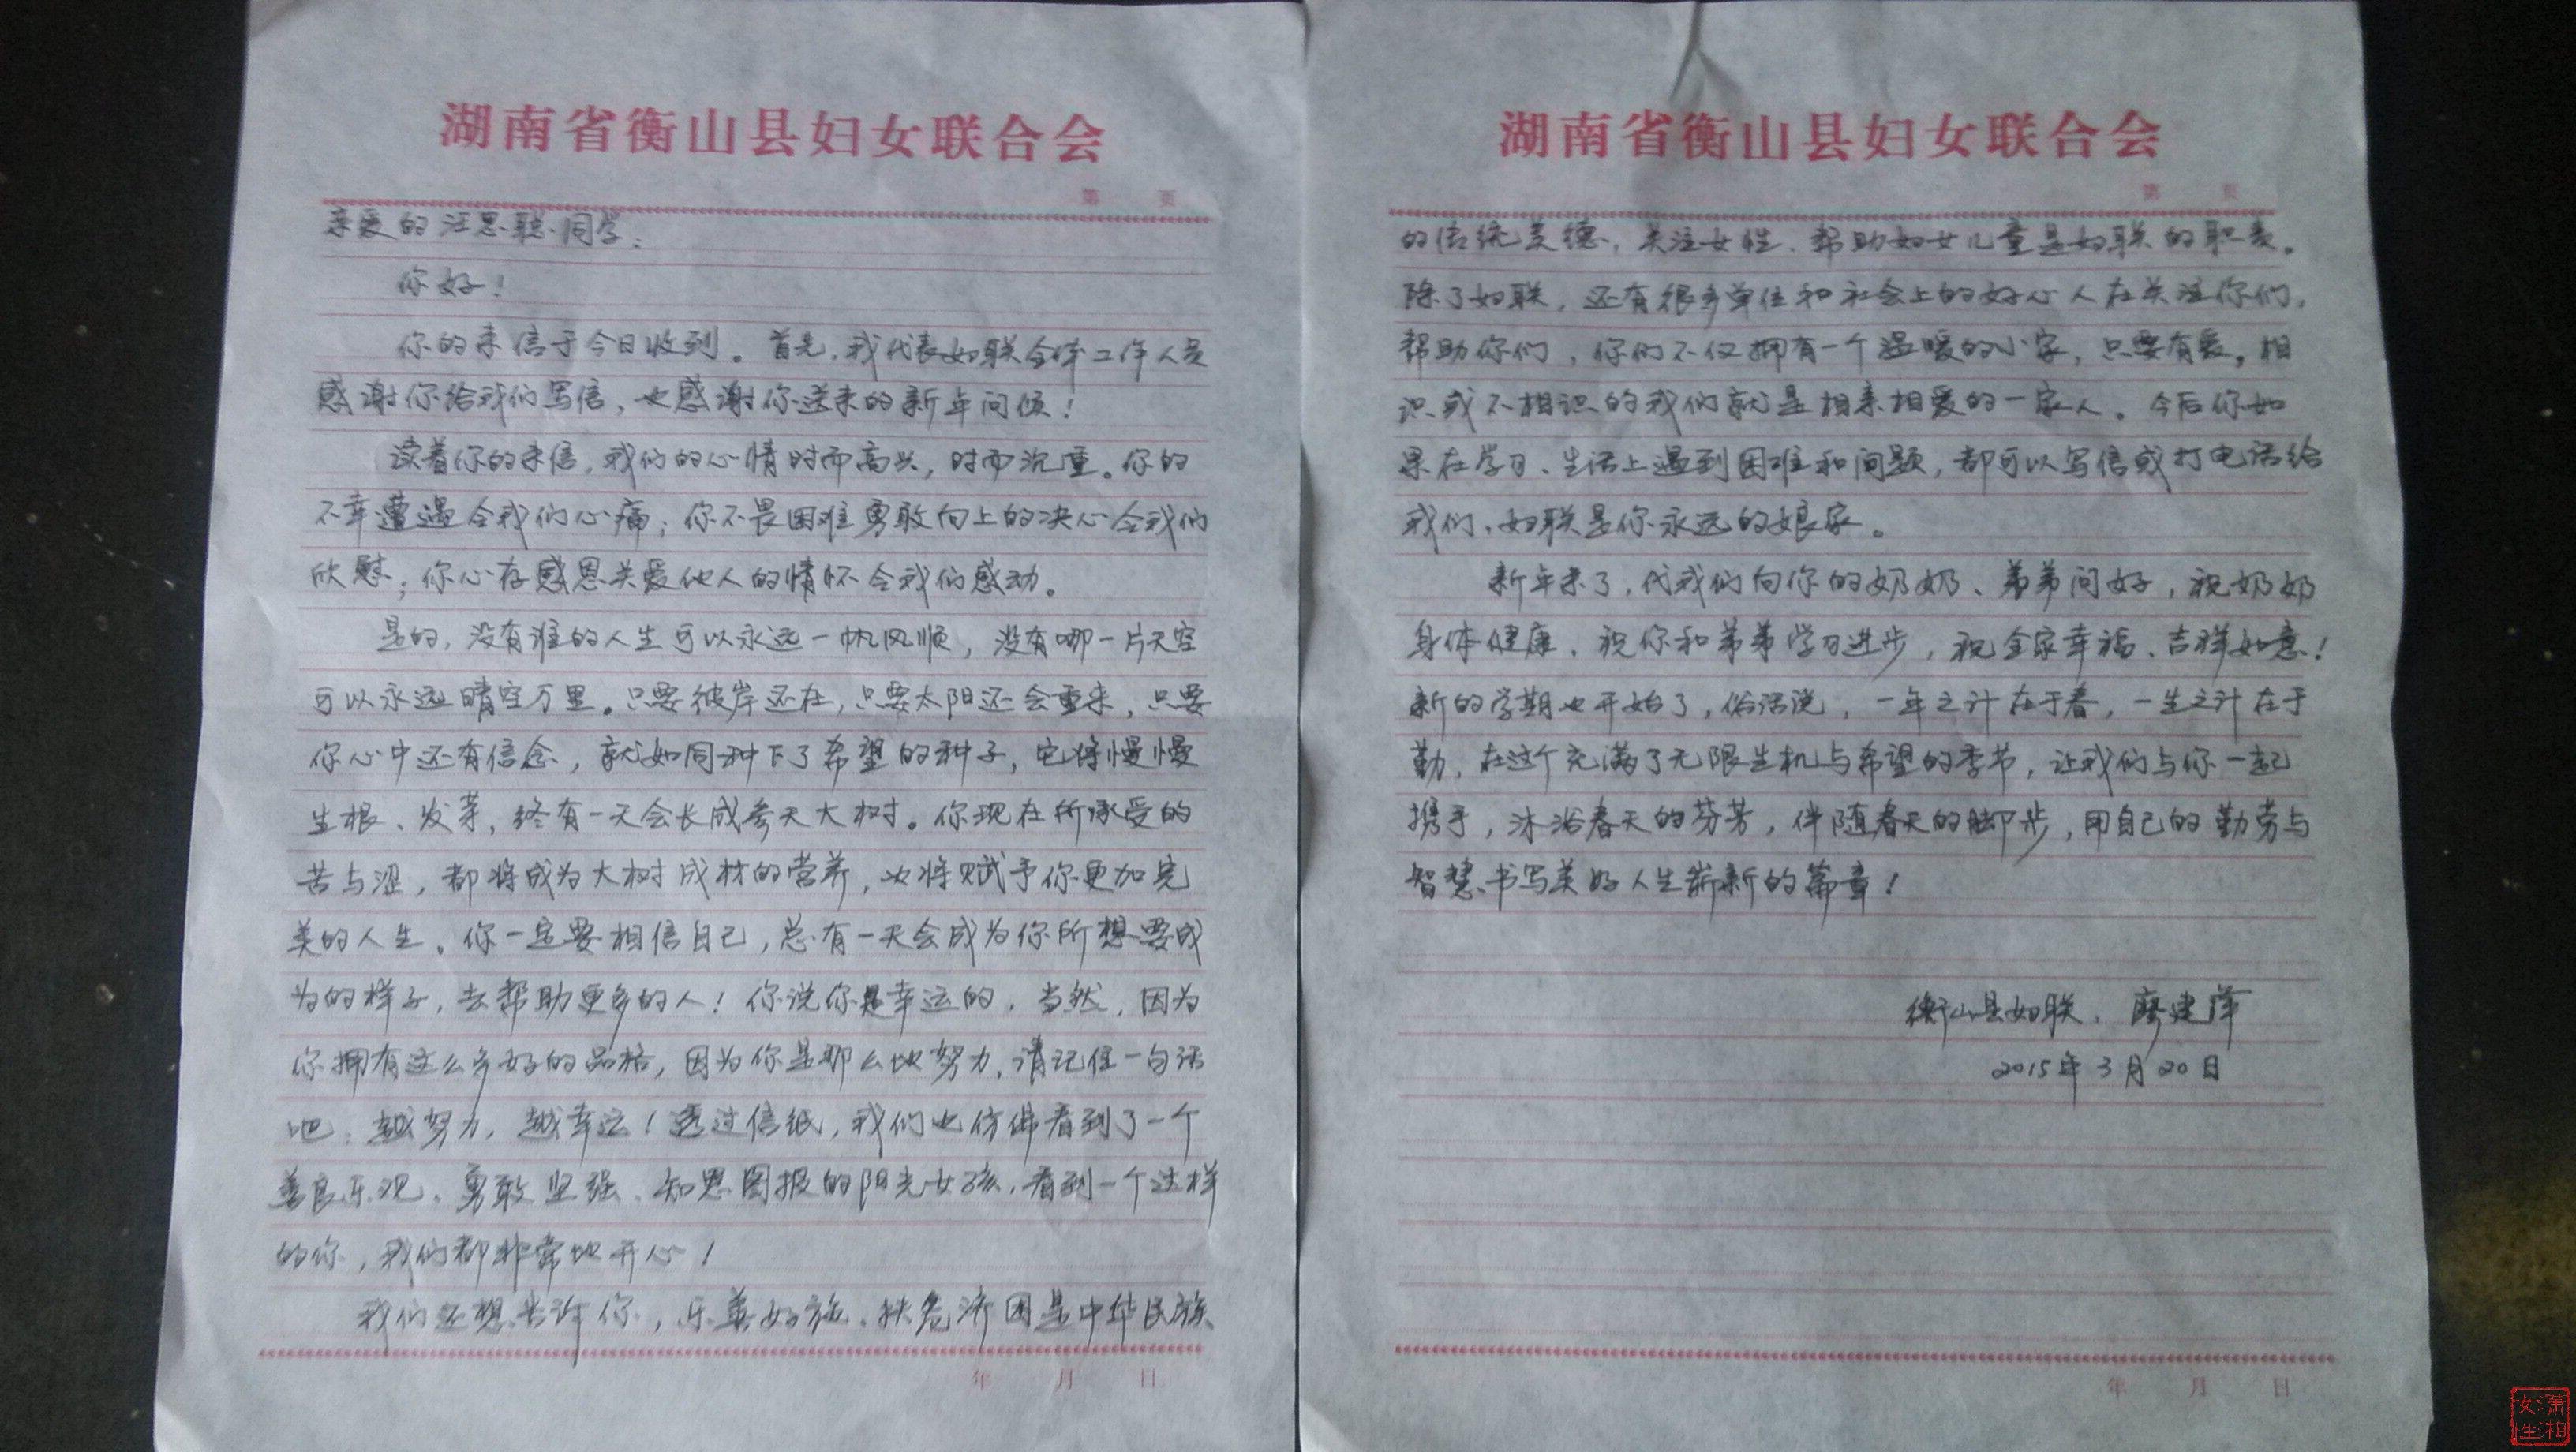 湖南省衡山县妇女联合会
第 页
亲爱的汪思聪同学:
你好!
你的来信于今日收到。首先,我代表妇联全体工作人员
感谢你给我们写信,也感谢你送来的新年问候!
读着你的来信,我们的心情时而高兴,时而沉重。你的
不幸遭遇令我们心痛;你不畏困难勇敢向上的决心令我们
欣慰;你心存感恩关爱他人的情怀令我们感动。
是的,没有谁的人生可以永远一帆风顺,没有哪一片天空
可以永远晴空万里。只要彼岸还在,只要太阳还会重来,只要
你心中还有信念,就如同种下了希望的种子,它将慢慢
生根、发芽,终有一天会长成参天大树。你现在所承受的
苦与涩,都将成为大树成材的营养,也将赋予你更加完
美的人生。你一定要相信自己,总有一天会成为你所想要成
为的样子,去帮助更多的人!你说你是幸运的,当然,因为
你拥有这么多好的品格,因为你是那么地努力,请记住一句话
吧:越努力,越幸运!透过信纸,我们也仿佛看到了一个
善良乐观、勇敢坚强、知恩图报的阳光女孩,看到一个这样
的你,我们都非常地开心!
我们还想告诉你,乐善好施、扶危济困是中华民族
年 月 日
湖南省衡山县妇女联合会
第 页
的传统美德,关注女性、帮助妇女儿童是妇联的职责。
除了妇联,还有很多单位和社会上的好心人在关注你们,
帮助你们,你们不仅拥有一个温暖的小家,只要有爱,相
识或不相识的我们就是相亲相爱的一家人。今后你如
果在学习、生活上遇到困难和问题,都可以写信或打电话给
我们,妇联是你永远的娘家。
新年来了,代我们向你的奶奶、弟弟问好,祝奶奶
身体健康、祝你和弟弟学习进步,祝全家幸福、吉祥如意!
新的学期也开始了,俗话说,一年之计在于春,一生之计在于
勤,在这个充满了无限生机与希望的季节,让我们与你一起
携手,沐浴春天的芬芳,伴随春天的脚步,用自己的勤劳与
智慧书写美好人生崭新的篇章!
衡山县妇联:廖建萍
2015年3月20日
年 月 日
潇湘
女性